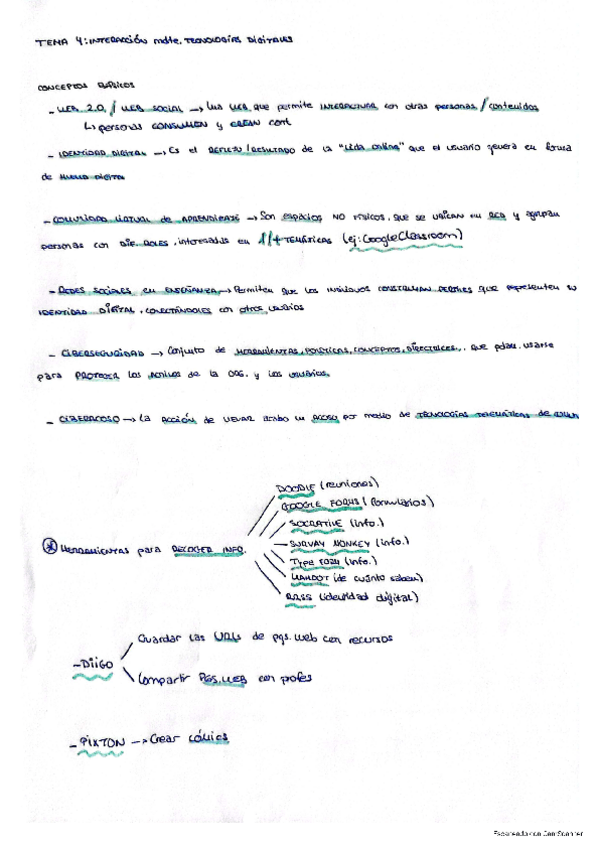 TEMA 4: INTERACCIÓN mdte. TECNOLOGÍAS DIGITALES
CONCEPTOS BÁSICOS
- WEB 2.0 / WEB SOCIAL → Una WEB que permite INTERACTUAR con otras personas / contenidos
↳ personas CONSUMEN y CREAN cont.
- IDENTIDAD DIGITAL → Es el REFLEJO / RESULTADO de la "vida online" que el usuario genera en forma
de HUELLA DIGITAL
- COMUNIDAD VIRTUAL DE APRENDIZAJE → Son espacios NO FÍSICOS, que se ubican en RED y agrupan
personas con DIF. ROLES, interesadas en 1/+ TEMÁTICAS (ej: Google Classroom)
- REDES SOCIALES en ENSEÑANZA → Permiten que los individuos CONSTRUYAN PERFILES que representen su
IDENTIDAD DIGITAL, CONECTÁNDOLES con otros usuarios
- CIBERSEGURIDAD → Conjunto de HERRAMIENTAS, POLÍTICAS, CONCEPTOS, DIRECTRICES... que pdan. usarse
para PROTEGER los ACTIVOS de la ORG. y los USUARIOS.
- CIBERACOSO → La ACCIÓN de LLEVAR a cabo un ACOSO por medio de TECNOLOGÍAS TELEMÁTICAS de
* HERRAMIENTAS para RECOGER INFO.
DOODLE (reuniones)
GOOGLE FORMS (formularios)
SOCRATIVE (info.)
SURVAY MONKEY (info.)
TYPE FORM (info.)
KAHOOT (de cuánto saben)
RRSS (identidad digital)
- DIIGO
Guardar las URLs de pgs. web con recursos
Compartir PGS. WEB con profes
- PIXTON → Crear CÓMICS
Escaneado con CamScanner